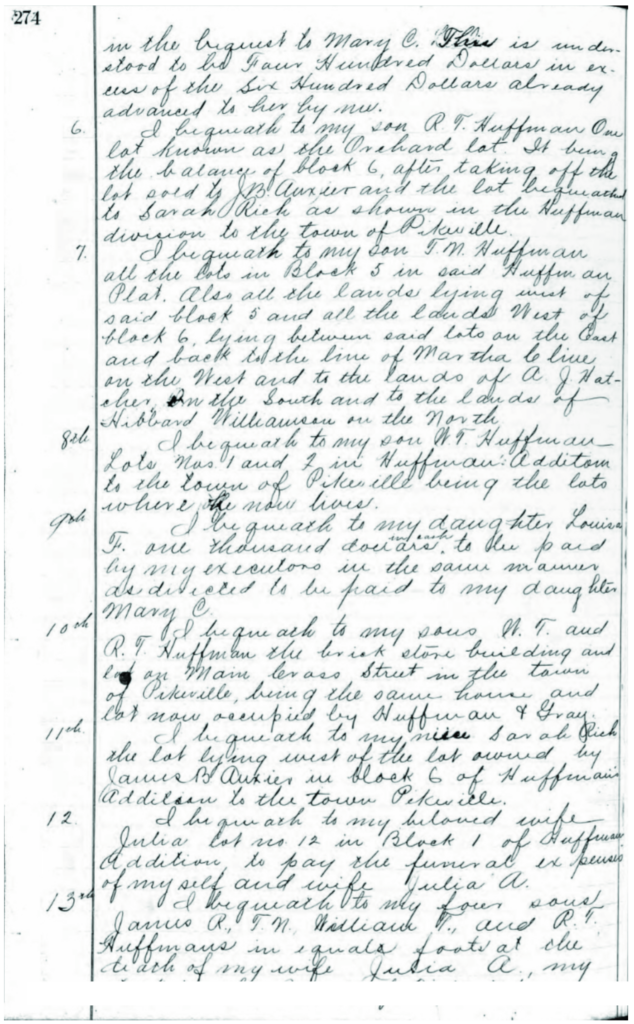 274
in the bequest to Mary C. This is under-
stood to be Four Hundred Dollars in ex-
cess of the Six Hundred Dollars already
advanced to her by me.
6. I bequeath to my son R. T. Huffman One
lot known as the Orchard lot. It being
the balance of block 6, after taking off the
lot sold to J B. Auxier and the lot bequeathed
to Sarah Rich as shown in the Huffman
division to the town of Pikeville.
7. I bequeath to my son T. N. Huffman
all the lots in Block 5 in said Huffman
Plat. Also all the lands lying west of
said block 5 and all the lands West of
block 6, lying between said lots on the East
and back to the line of Martha C line
on the West and to the lands of A. J Hat-
cher, On the South and to the lands of
Hibbard Williamson on the North
8th I bequeath to my son W. T. Huffman
Lots Nos. 1 and 2 in Huffman Additom
to the town of Pikeville being the lots
where he now lives.
9th I bequeath to my daughter Louisa
F. one thousand dollars, in cash to be paid
by my executors in the same manner
as directed to be paid to my daughter
Mary C.
10th I bequeath to my sons W. T. and
R. T. Huffman the brick store building and
lot on Main Cross Street in the town
of Pikeville, being the same house and
lot now occupied by Huffman & Gray.
11th I bequeath to my niece Sarah Rich
the lot lying west of the lot owned by
James B Auxier in block 6 of Huffmans
Addition to the town Pikeville.
12. I bequeath to my beloved wife
Julia lot no. 12 in Block 1 of Huffman
Addition to pay the funeral expenses
of myself and wife Julia A.
13th I bequeath to my four sons
James R., T. N., William T., and R. T.
Huffmans in equals at the
death of my wife Julia A., my